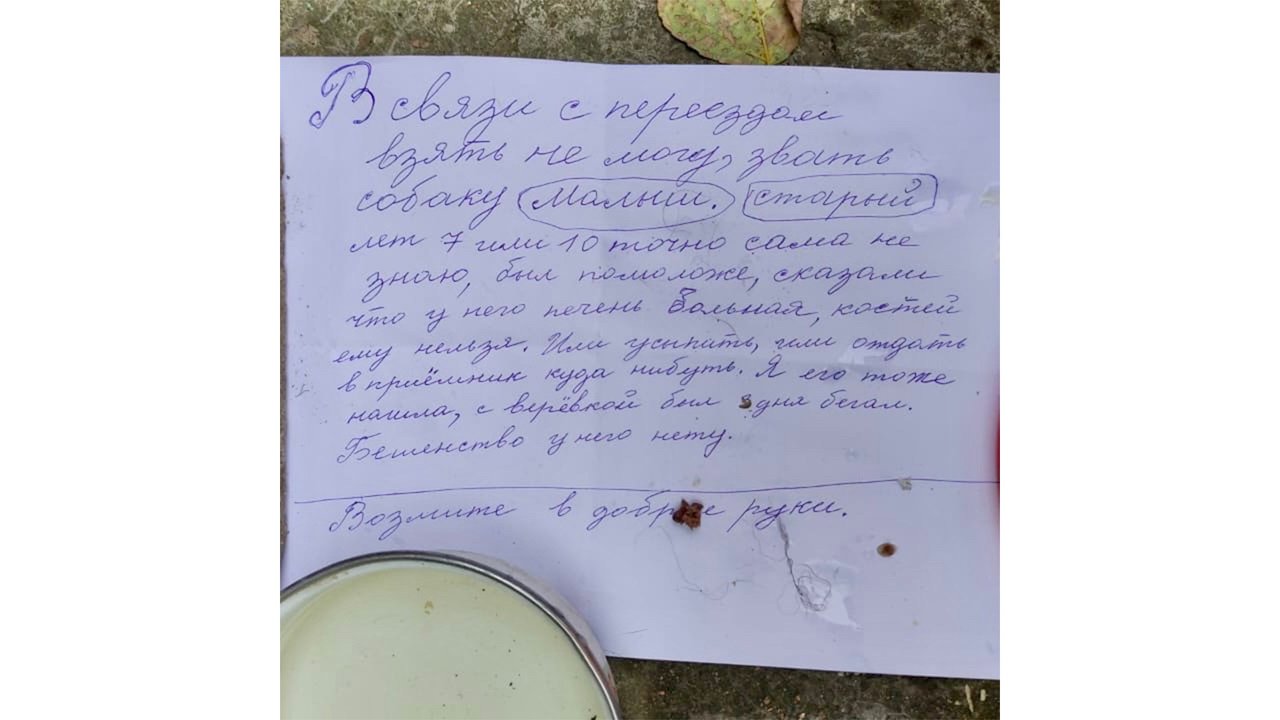 В связи с переездом
взять не могу, звать
собаку Малыш. старый
лет 7 или 10 точно сама не
знаю, был помоложе, сказали
что у него печень больная, костей
ему нельзя. Или усыпить, или отдать
в приёмник куда нибуть. Я его тоже
нашла, с верёвкой был 3 дня бегал.
Бешенство у него нету.
Возмите в добрые руки.